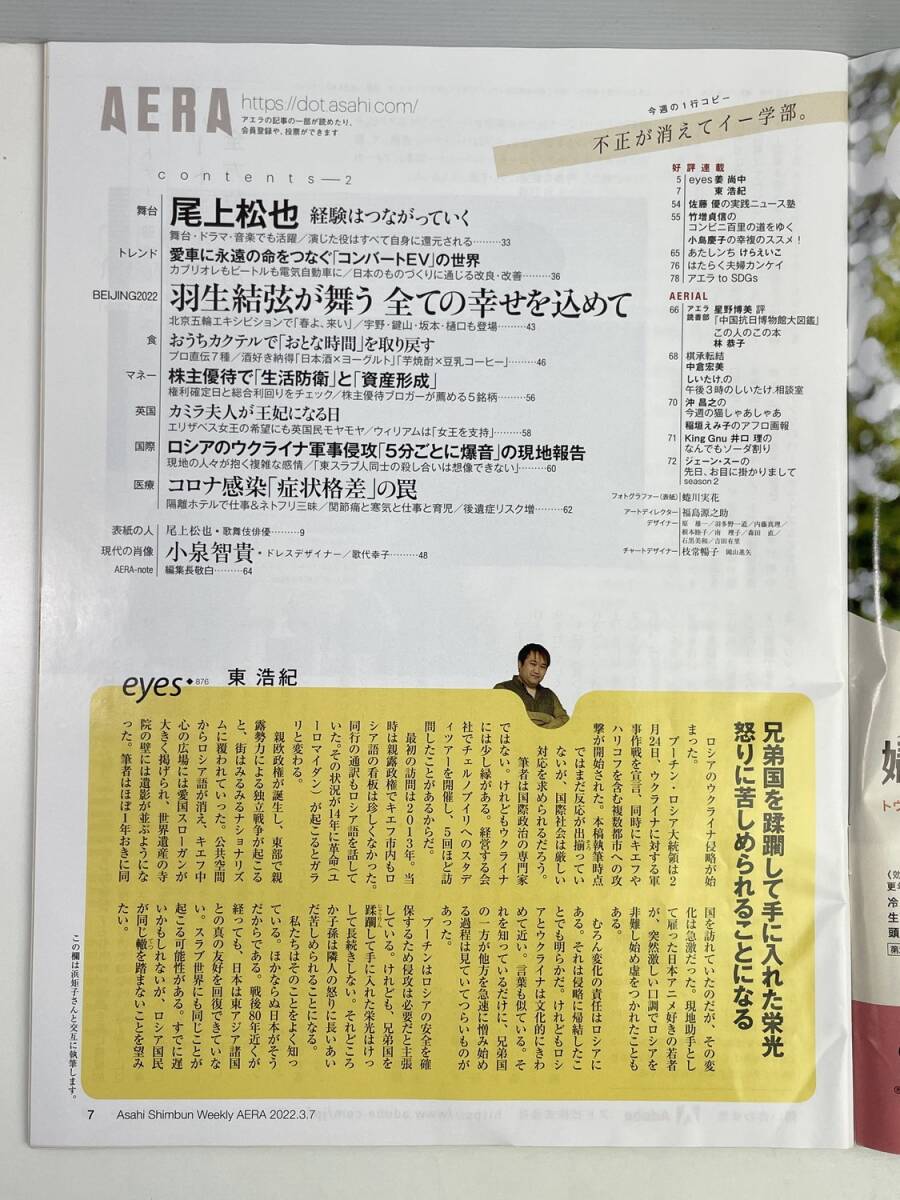 AERA
https://dot.asahi.com/
アエラの記事の一部が読めたり、
会員登録や、投票ができます
今週の1行コピー
不正が消えてイー学部。
contents—2
舞台 尾上松也 経験はつながっていく
舞台・ドラマ・音楽でも活躍／演じた役はすべて自身に還元される………33
トレンド 愛車に永遠の命をつなぐ「コンバートEV」の世界
カブリオレもビートルも電気自動車に／日本のものづくりに通じる改良・改善………36
BEIJING2022 羽生結弦が舞う 全ての幸せを込めて
北京五輪エキシビションで「春よ、来い」／宇野・鍵山・坂本・樋口も登場………43
食 おうちカクテルで「おとな時間」を取り戻す
プロ直伝7種／酒好き納得「日本酒×ヨーグルト」「芋焼酎×豆乳コーヒー」………46
マネー 株主優待で「生活防衛」と「資産形成」
権利確定日と総合利回りをチェック／株主優待ブロガーが薦める5銘柄………56
英国 カミラ夫人が王妃になる日
エリザベス女王の希望にも英国民モヤモヤ／ウィリアムは「女王を支持」………58
国際 ロシアのウクライナ軍事侵攻「5分ごとに爆音」の現地報告
現地の人々が抱く複雑な感情／「東スラブ人同士の殺し合いは想像できない」………60
医療 コロナ感染「症状格差」の罠
隔離ホテルで仕事&ネトフリ三昧／関節痛と寒気と仕事と育児／後遺症リスク増………62
表紙の人 尾上松也・歌舞伎俳優………9
現代の肖像 小泉智貴・ドレスデザイナー／歌代幸子………48
AERA-note 編集長敬白………64
好評連載
5 eyes 姜 尚中
7 東 浩紀
54 佐藤 優の実践ニュース塾
55 竹増貞信の
コンビニ百里の道をゆく
小島慶子の幸複のススメ！
65 あたしンち けらえいこ
76 はたらく夫婦カンケイ
78 アエラ to SDGs
AERIAL
66 アエラ読書部 星野博美 評
「中国抗日博物館大図鑑」
この人のこの本
林 恭子
68 棋承転結
中倉宏美
しいたけ.の
午後3時のしいたけ.相談室
70 沖 昌之の
今週の猫しゃあしゃあ
稲垣えみ子のアフロ画報
71 King Gnu 井口 理の
なんでもソーダ割り
72 ジェーン・スーの
先日、お目に掛かりまして
season2
フォトグラファー（表紙） 蜷川実花
アートディレクター 福島源之助
デザイナー 原 雄一／羽多野一道／内藤真理／
根本睦子／南 理子／森田 直／
石黒美和／吉田有里
チャートデザイナー 枝常暢子 岡山進矢
eyes◆876 東 浩紀
兄弟国を蹂躙して手に入れた栄光
怒りに苦しめられることになる
ロシアのウクライナ侵略が始
まった。
プーチン・ロシア大統領は2
月24日、ウクライナに対する軍
事作戦を宣言、同時にキエフや
ハリコフを含む複数都市への攻
撃が開始された。本稿執筆時点
ではまだ反応が出揃ってい
ないが、国際社会は厳しい
対応を求められるだろう。
筆者は国際政治の専門家
ではない。けれどもウクライナ
には少し縁がある。経営する会
社でチェルノブイリへのスタデ
ィツアーを開催し、5回ほど訪
問したことがあるからだ。
最初の訪問は2013年。当
時は親露政権でキエフ市内もロ
シア語の看板は珍しくなかった。
同行の通訳もロシア語を話して
いた。その状況が14年に革命（ユ
ーロマイダン）が起こるとガラ
リと変わる。
親欧政権が誕生し、東部で親
露勢力による独立戦争が起こる
と、街はみるみるナショナリズ
ムに覆われていった。公共空間
からロシア語が消え、キエフ中
心の広場には愛国スローガンが
大きく掲げられ、世界遺産の寺
院の壁には遺影が並ぶようにな
った。筆者はほぼ1年おきに同
国を訪れていたのだが、その変
化は急激だった。現地助手とし
て雇った日本アニメ好きの若者
が、突然激しい口調でロシアを
非難し始め虚をつかれたことも
ある。
むろん変化の責任はロシアに
ある。それは侵略に帰結したこ
とでも明らかだ。けれどもロシ
アとウクライナは文化的にきわ
めて近い。言葉も似ている。そ
れを知っているだけに、兄弟国
の一方が他方を急速に憎み始め
る過程は見ていてつらいものが
あった。
プーチンはロシアの安全を確
保するため侵攻は必要だと主張
している。けれども、兄弟国を
蹂躙して手に入れた栄光はけっ
して長続きしない。それどころ
か子孫は隣人の怒りに長いあい
だ苦しめられることになる。
私たちはそのことをよく知っ
ている。ほかならぬ日本がそう
だからである。戦後80年近くが
経っても、日本は東アジア諸国
との真の友好を回復できていな
い。スラブ世界にも同じことが
起こる可能性がある。すでに遅
いかもしれないが、ロシア国民
が同じ轍を踏まないことを望み
たい。
この欄は浜矩子さんと交互に執筆します。
7 Asahi Shimbun Weekly AERA 2022.3.7